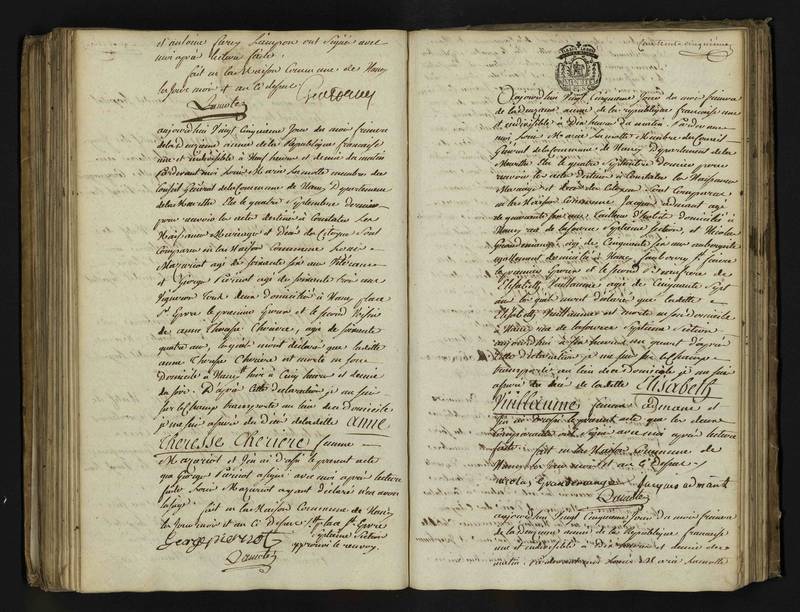 et antoine Carez Lampron ont Signé avec
moi après lecture faite.
fait en la Maison Commune de Nancy
les jour mois et an ci dessus
Lamotte
aujourdhui Vingt Cinquieme Jour du mois frimaire
de la deuxieme année de la République française
une et indivisible à Neuf heures et demie du matin
Pardevant moi Louis Marie Lamotte membre du
Conseil Général de la commune de Nancy Département
de la Meurthe Elu le quatre Septembre dernier
pour recevoir les actes destinés à Constater Les
Naissances Mariages et Décès des Citoyens Sont
Comparus en la Maison Commune Louis
Mazuriot agé de soixante six ans Vétérans
et George Pierrot agé de soixante trois ans
Vigneron Tous deux domiciliés à Nancy place
St Epvre le premier Epoux et le second Voisin
de anne Therese Cheviere, agée de soixante
quatre ans, lesquels m'ont déclaré que ladite
anne Therese Cheviere est morte en son
domicile à Nancy hier à Cinq heures et demie
du soir. D'après Cette déclaration je me suis
sur le Champ transporté au lieu de ce domicile
je me suis assuré du Décès de ladite anne
Theresse Cheviere femme
Mazuriot et j'en ai dressé le présent acte
que George Pierrot a signé avec moi après lecture
faite Louis Mazuriot ayant déclaré n'en avoir
l'usage.
fait en la Maison Commune de Nancy
les Jour mois et an Ci dessus place St Epvre
Septieme Section
approuvé le renvoy.
George pierrot
Lamotte
Cent trente cinquieme
aujourdhui Vingt Cinquieme Jour du mois frimaire
de la deuxieme année de la république française une
et indivisible à Dix heures du matin Pardevant
moi Louis Marie Lamotte Membre du Conseil
Général de la commune de Nancy Département de la
Meurthe Elu le quatre Septembre dernier pour
recevoir les actes destinés à Constater les Naissances
Mariages et Décès des Citoyens Sont Comparus
en la Maison Commune Jacques admant agé
de quarante six ans Tailleur d'habits domicilié à
Nancy rue de la source Septieme Section, et Nicolas
Grandmange agé de Cinquante six ans aubergiste
egallement domicilié à Nancy
le premier Epoux et le second
Elisabeth Vuillaume agée de Cinquante Sept
ans lesquels m'ont déclaré que ladite
Elisabeth Vuillaume est morte en son domicile
à Nancy rue de la source Septieme Section
aujourdhui à six heures du matin d'après
Cette déclaration je me suis sur le champ
transporté au lieu de ce domicile je me suis
assuré du décès de ladite Elisabeth
Vuillaume femme admant et
j'en ai dressé le présent acte que les deux
comparants ont Signé avec moi après lecture
faite. fait en la Maison commune de
Nancy les jour mois et an ci Dessus.
nicolas Grandemange Jacques admant
Lamotte
aujourdhui Vingt Cinquieme Jour du mois frimaire
de la deuxieme année de la République française
une et indivisible à Dix heures et demie du
matin. Pardevant moi Louis Marie Lamotte